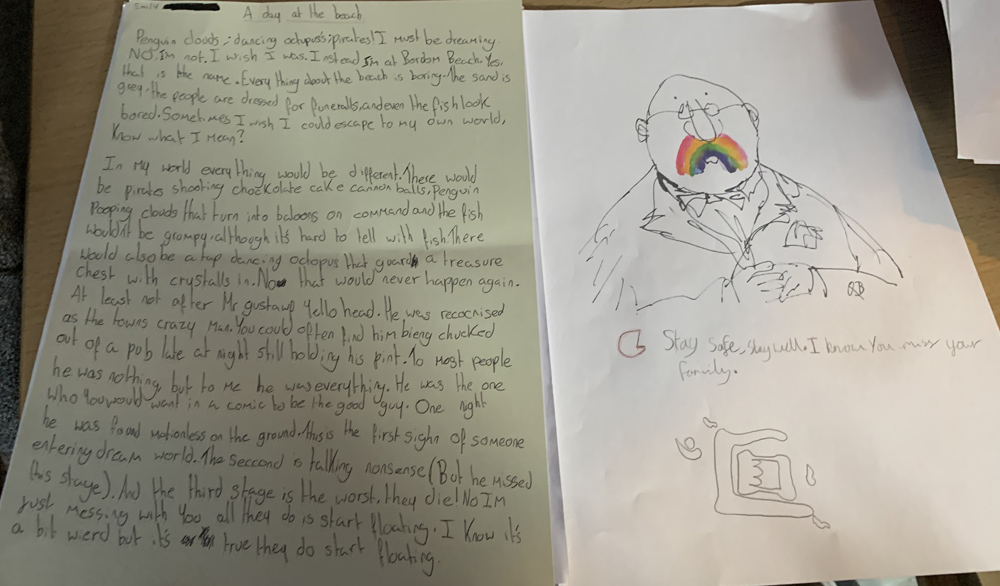 Emily
A day at the beach
Penguin clouds, dancing octopus's, pirates! I must be dreaming
NO. I'm not. I wish I was. Instead I'm at Bordom Beach. Yes,
that is the name. Every thing about the beach is boring. The sand is
grey, the people are dressed for funeralls, and even the fish look
bored. Sometimes I wish I could escape to my own world,
Know what I mean?
In my world everything would be different. There would
be pirates shooting chockolate cake cannon balls, Penguin
Pooping clouds that turn into baloons on command and the fish
wouldn't be grompy, although it's hard to tell with fish. There
would also be a tap dancing octopus that guard a treasure
chest with crystalls in. No that would never happen again.
At least not after Mr gustamp Yello head. He was recocnised
as the towns crazy man. You could often find him bieng chucked
out of a pub late at night still holding his pint. To most people
he was nothing but to me he was everything. He was the one
who you would want in a comic to be the good guy. One night
he was found motionless on the ground. This is the first sighn of someone
entering dream world. The seccond is talking nonsense (But he missed
this stage). And the third stage is the worst. they die! No IM
just messing with you all they do is start floating. I know it's
a bit wierd but it's true they do start floating.
Stay safe, stay well. I know you miss your
family.